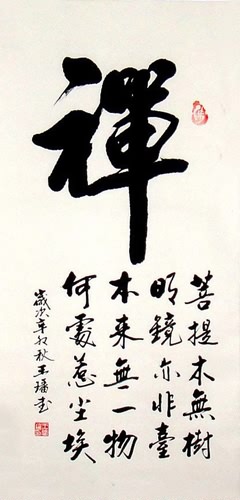 禪
菩提本無樹
明鏡亦非臺
本来無一物
何處惹尘埃
歲次辛卯秋王書